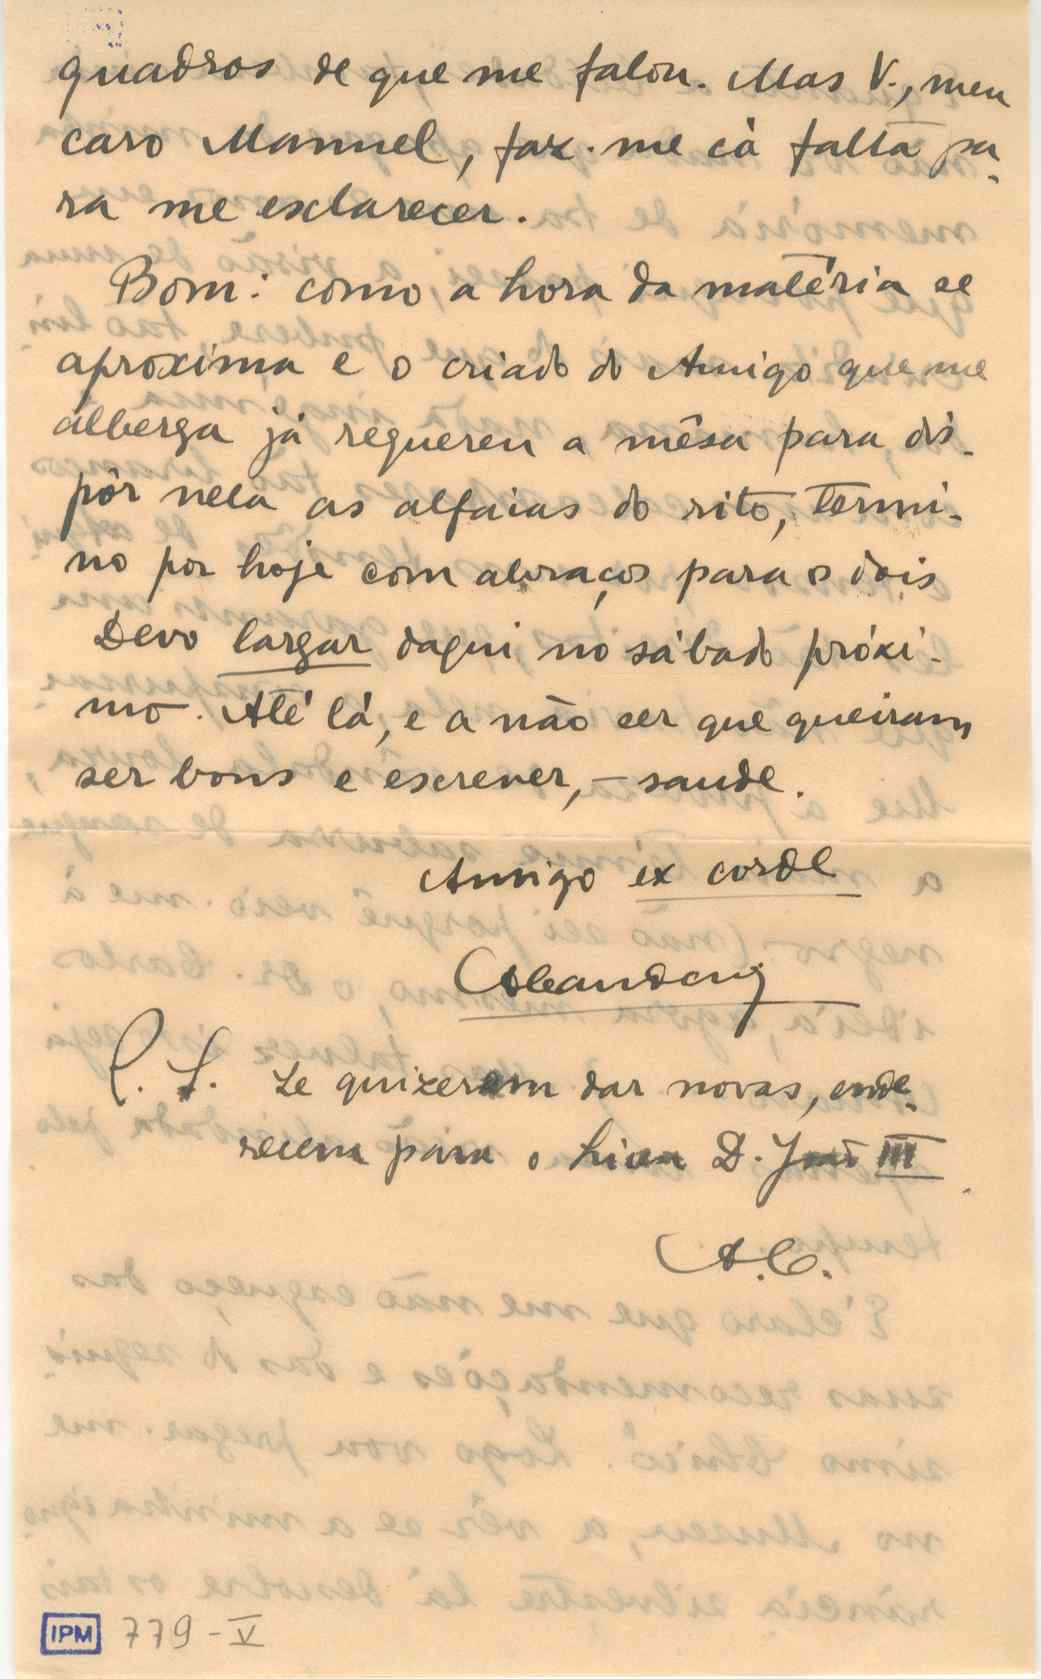 quadros de que me falou. Mas V., meu
caro Manuel, faz-me cá falta pa-
ra me esclarecer.
Bom: como a hora da matéria se
aproxima e o criado do Amigo que me
alberga já requereu a mêsa para dis-
pôr nela as alfaias do rito, termi-
no por hoje com abraços para os dois
Devo largar daqui no sábado próxi-
mo. Até lá, e a não ser que queiram
ser bons e escrever, – saude.
Amigo ex corde
P. S. Se quizerem dar novas, ende-
recem para o Liceu D. João III
A.C.
IPM 779-V